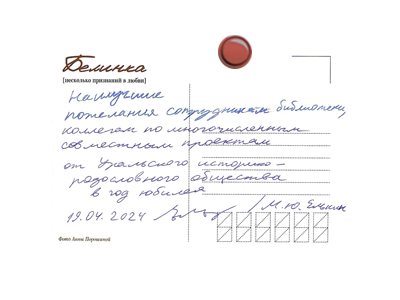 Белинка
[несколько признаний в любви]
Наилучшие
пожелания сотрудникам библиотеки,
коллегам по многочисленным
совместным проектам
от Уральского историко-
родословного общества
в год юбилея
19.04.2024
/М.Ю. Елькин
Фото: Анны Поршиной